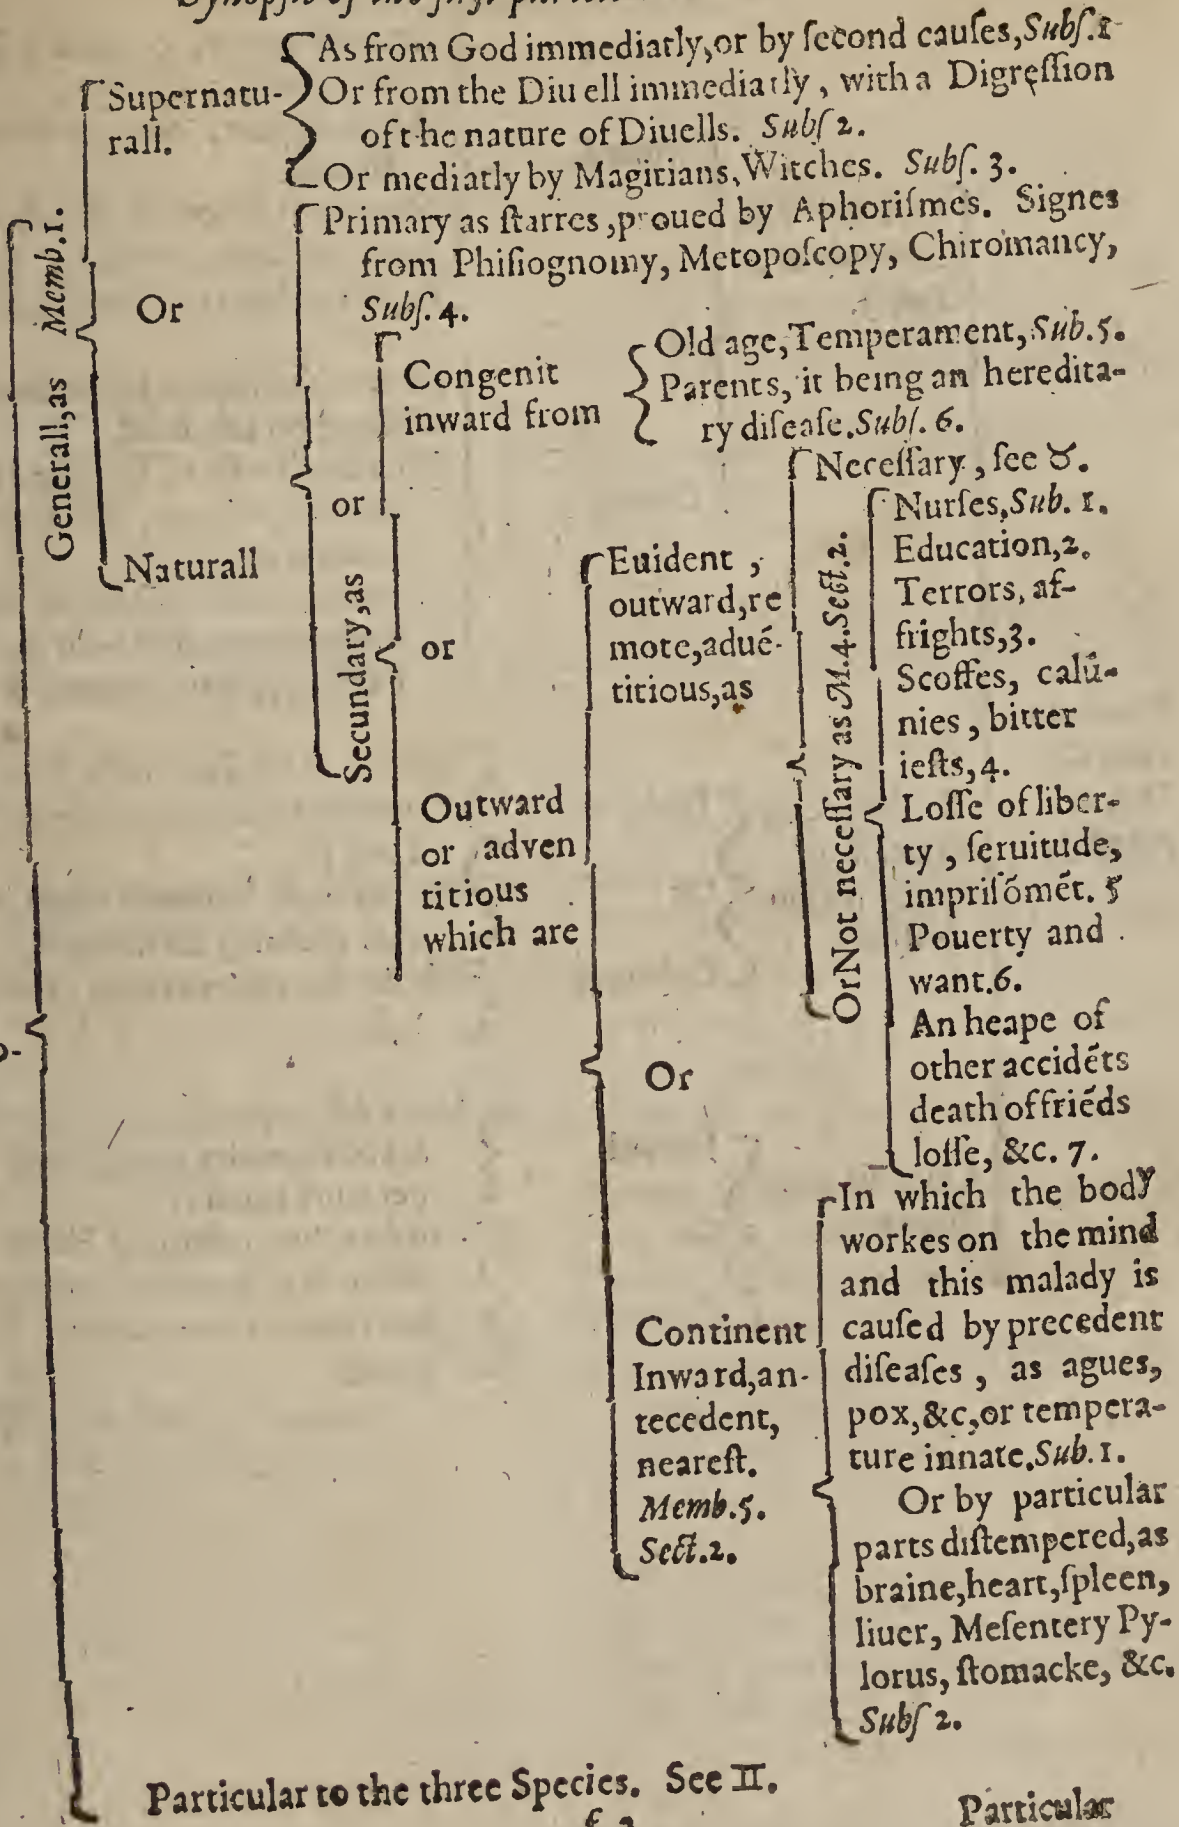 Synopsis of the first partition
As from God immediatly, or by ſecond cauſes, Subſ. 1
Supernatu-
rall.
Or from the Diuell immediatly, with a Digreſſion
of the nature of Diuells. Subſ 2.
Or mediatly by Magitians, Witches. Subſ. 3.
Generall, as Memb. 1.
Or
Primary as ſtarres, proued by Aphoriſmes. Signes
from Phiſiognomy, Metopoſcopy, Chiromancy,
Subſ. 4.
Naturall
Secundary, as
or
Congenit
inward from
Old age, Temperament, Sub. 5.
Parents, it being an heredita-
ry diſeaſe. Subſ. 6.
or
Outward
or adven
titious
which are
Euident,
outward, re
mote, aduē-
titious, as
Neceſſary, ſee ♉.
Or Not neceſſary as M. 4. Sect. 2.
Nurſes, Sub. 1.
Education, 2.
Terrors, af-
frights, 3.
Scoffes, calū-
nies, bitter
ieſts, 4.
Loſſe of liber-
ty, ſeruitude,
impriſōmēt. 5
Pouerty and
want. 6.
An heape of
other accidēts
death of friēds
loſſe, &c. 7.
Or
Continent
Inward, an-
tecedent,
neareſt.
Memb. 5.
Sect. 2.
In which the body
workes on the mind
and this malady is
cauſed by precedent
diſeaſes, as agues,
pox, &c, or tempera-
ture innate. Sub. 1.
Or by particular
parts diſtempered, as
braine, heart, ſpleen,
liuer, Meſentery Py-
lorus, ſtomacke, &c.
Subſ 2.
Particular to the three Species. See ♊.
Particular